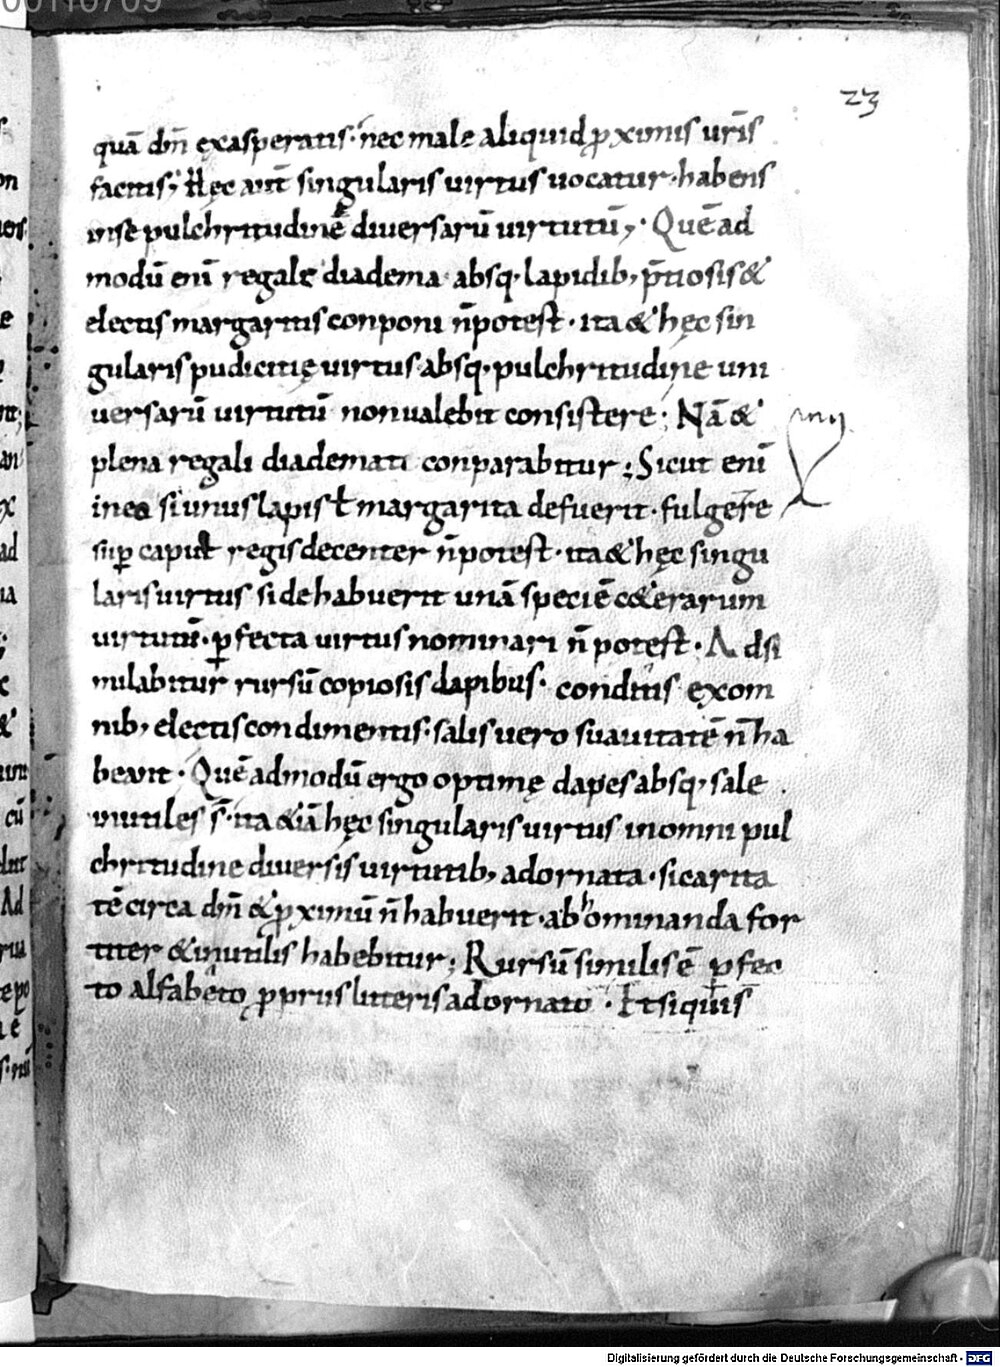 23
quā dn̄m exasperatis· nec male aliquid ꝓximis ur̄is
facitis; Hęc aut̄ singularis uirtus uocatur· habens
inse pulchritudinē diuersarū uirtutū; Quēad
modū eni regale diadema absq· lapidib; p̄tiosis &
electis margaritis conponi n̄ potest· ita & hęc sin
gularis pudicitię uirtus absq· pulchritudine uni
uersarū uirtutū non ualebit consistere; Nā &
plena regali diademati conparabitur; Sicut enī
in eo si unus lapis ł margarita defuerit· fulgere
sup̱ caput regis decenter n̄ potest· ita & hęc singu
laris uirtus si de habuerit unā speciē c&erarum
uirtutū· ꝑfecta uirtus nominari n̄ potest· Adsi
milabitur rursū copiosis dapibus· conditis ex om
nib; electis condimentis· salis uero suauitatē n̄ ha
beant· Quēadmodū ergo optimę dapes absq· sale
inutiles s̄· ita &iā hęc singularis uirtus in omni pul
chritudine diuersis uirtutib; adornata· si carita
tē circa dn̄m & ꝓximū n̄ habuerit· abhominanda for
titer & inutilis habebitur; Rursū similis ē ꝑfec
to alfabeto ꝓpriis litteris adornato· Et si quis